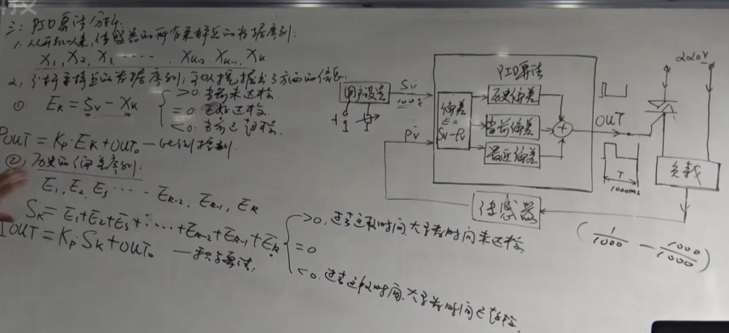 三: PID算法分析:
1, 从开机以来, 传感器的所有采样点的数据序列:
X₁, X₂, X₃ ⋯⋯ Xₖ₋₂, Xₖ₋₁, Xₖ
2, 分析采样点的数据序列, 可以挖掘出3方面的信息.
① Eₖ = Sv − Xₖ
>0: 当前未达标
=0:
<0: 当前已超标
POUT = Kp·Eₖ + OUT₀ — 比例控制
② 历史的偏差序列:
E₁, E₂, E₃ ⋯⋯ Eₖ₋₂, Eₖ₋₁, Eₖ
Sₖ = E₁+E₂+E₃+⋯⋯+Eₖ₋₂+Eₖ₋₁+Eₖ
>0, 过去这段时间大多数时间未达标
=0
<0, 过去这段时间, 大多数时间已超标
IOUT = Kp·Sₖ + OUT₀ — 积分算法
PID算法
用户设定
Sv
100℃
Pv
偏差
E=
Sv-Pv
历史偏差
当前偏差
最近偏差
+
OUT
T
1000ms
220V
负载
传感器
(1/1000 − 1000/1000)